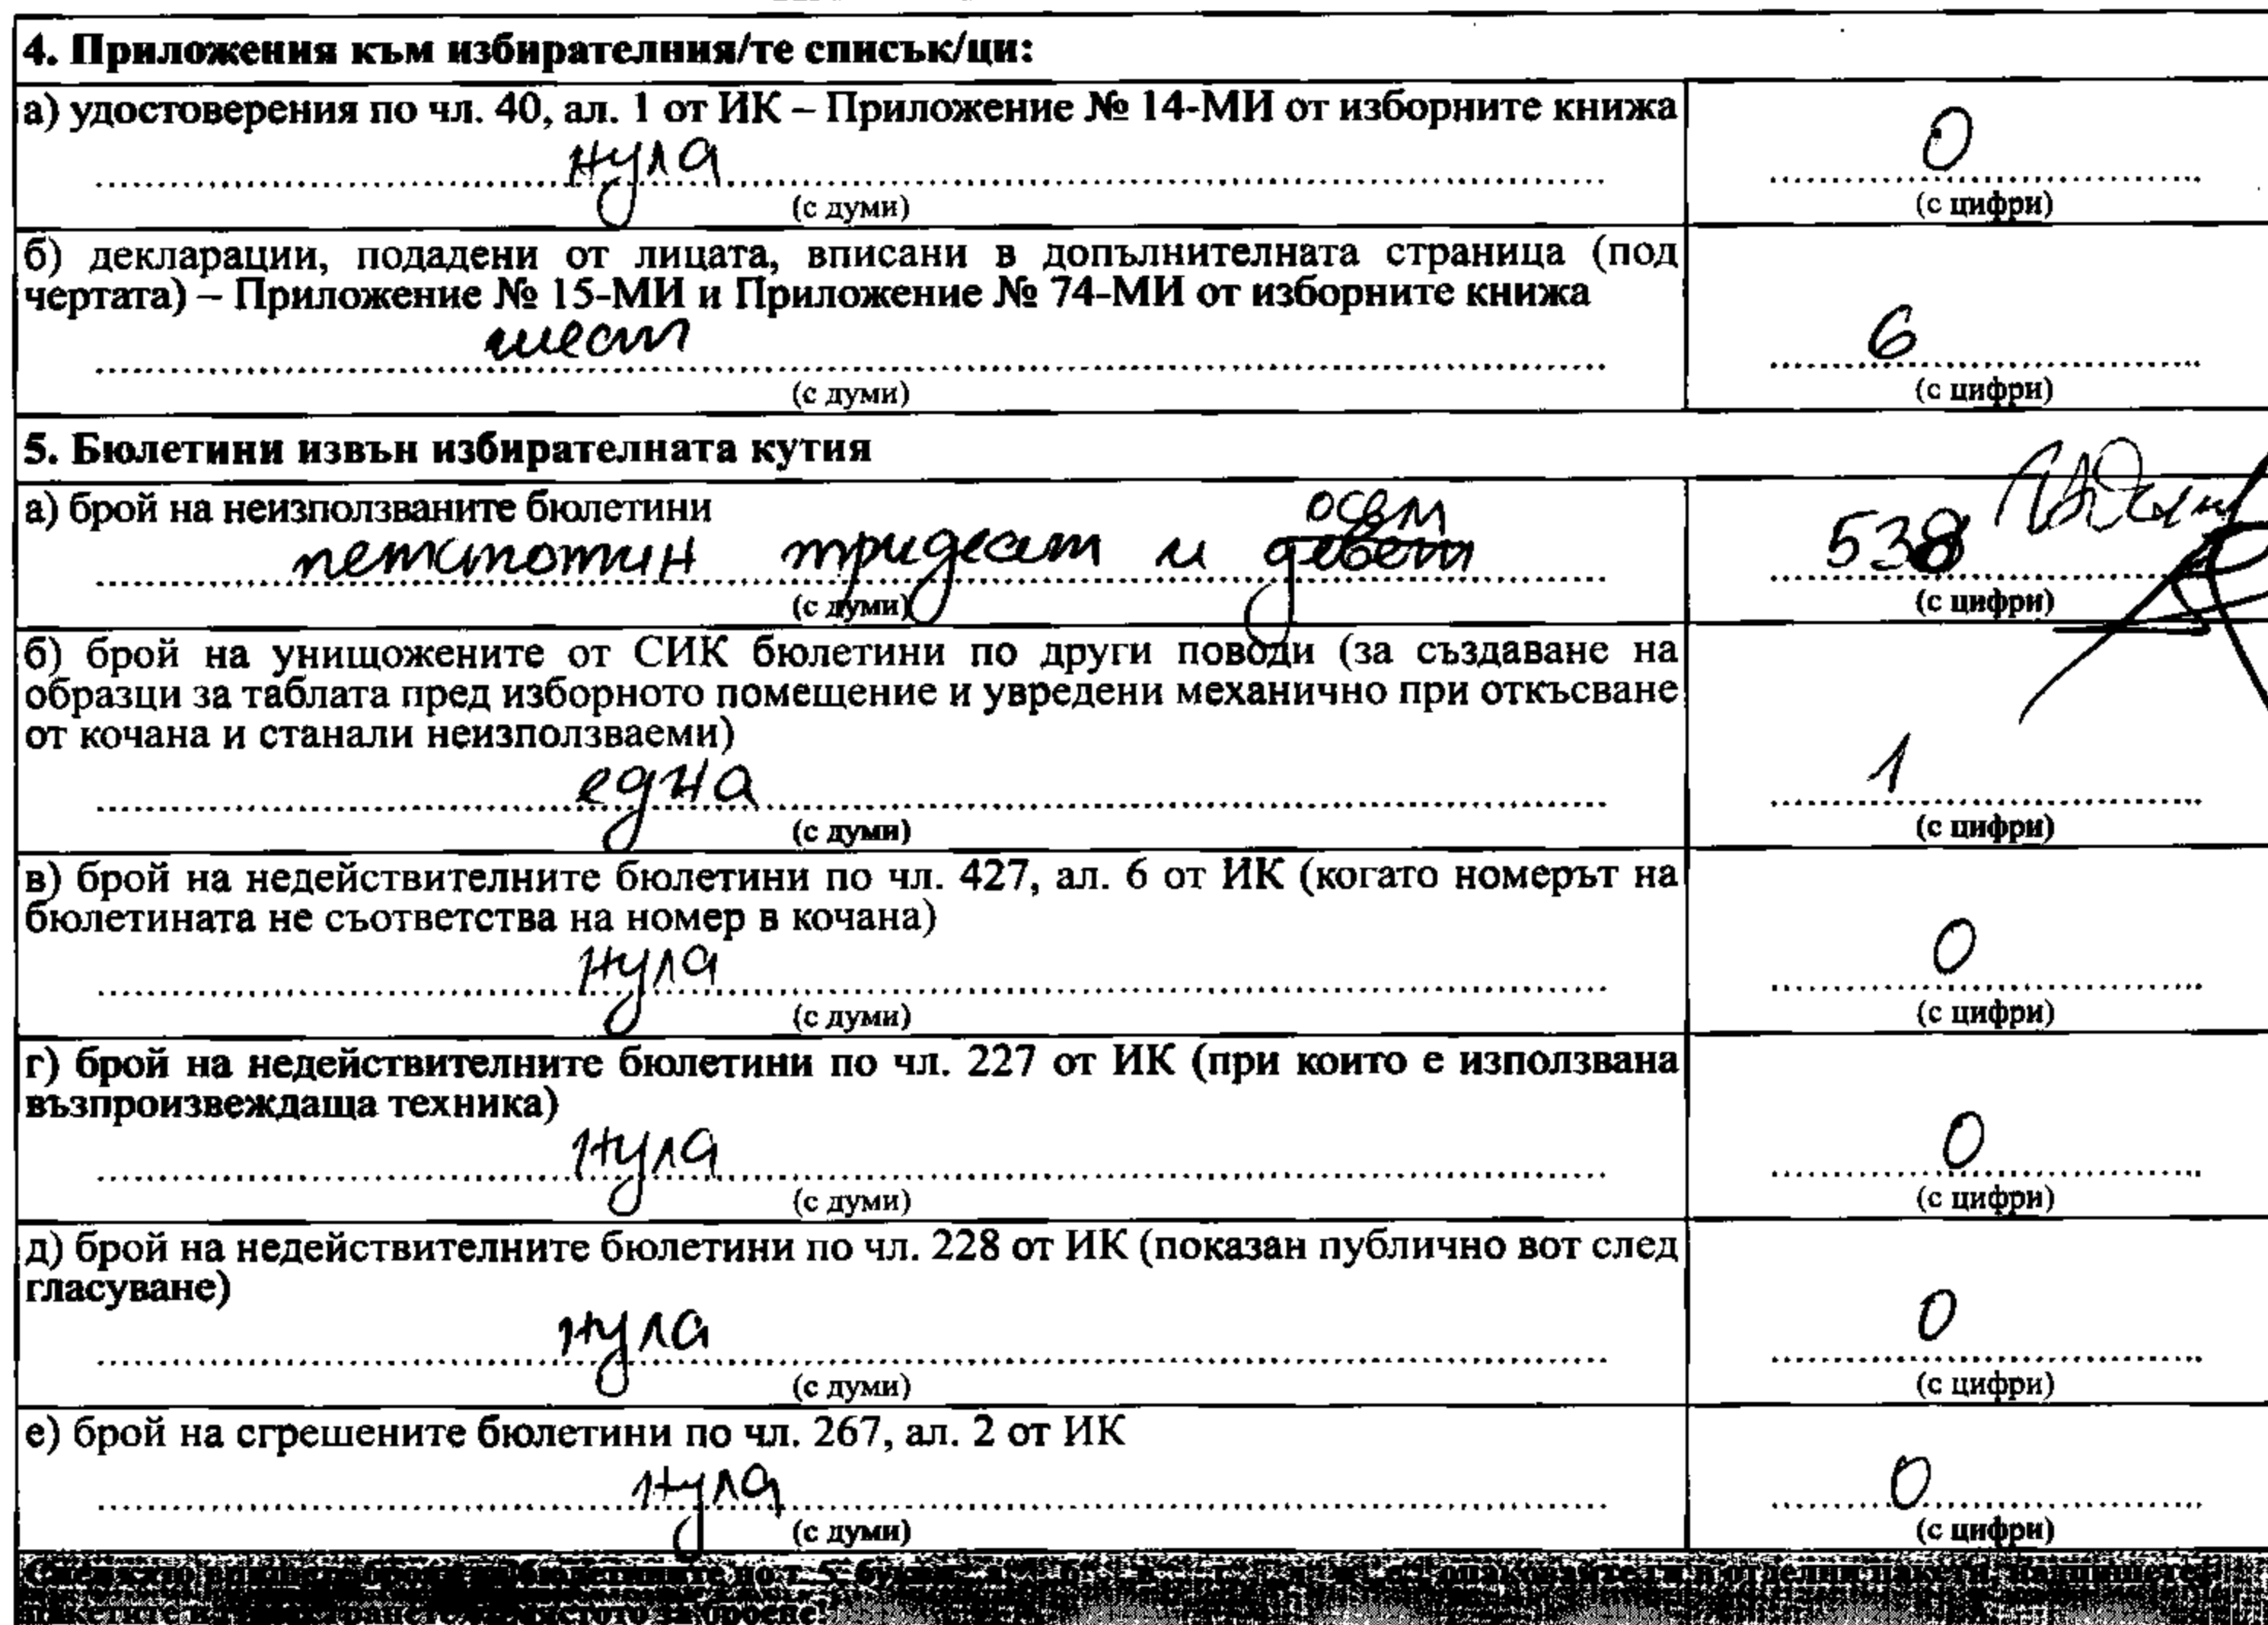 4. Приложения към избирателния/те списък/ци:
а) удостоверения по чл. 40, ал. 1 от ИК – Приложение № 14-МИ от изборните книжа
нула
0
(с думи)
(с цифри)
б) декларации, подадени от лицата, вписани в допълнителната страница (под
чертата) – Приложение № 15-МИ и Приложение № 74-МИ от изборните книжа
шест
6
(с думи)
(с цифри)
5. Бюлетини извън избирателната кутия
а) брой на неизползваните бюлетини
осем
петстотин тридесет и девет
538
(с думи)
(с цифри)
б) брой на унищожените от СИК бюлетини по други поводи (за създаване на
образци за таблата пред изборното помещение и увредени механично при откъсване
от кочана и станали неизползваеми)
една
1
(с думи)
(с цифри)
в) брой на недействителните бюлетини по чл. 427, ал. 6 от ИК (когато номерът на
бюлетината не съответства на номер в кочана)
нула
0
(с думи)
(с цифри)
г) брой на недействителните бюлетини по чл. 227 от ИК (при които е използвана
възпроизвеждаща техника)
нула
0
(с думи)
(с цифри)
д) брой на недействителните бюлетини по чл. 228 от ИК (показан публично вот след
гласуване)
нула
0
(с думи)
(с цифри)
е) брой на сгрешените бюлетини по чл. 267, ал. 2 от ИК
нула
0
(с думи)
(с цифри)
бюлетините по т. 5 опаковайте ги в отделни пакети, напишете
пакетите мястото за броене!